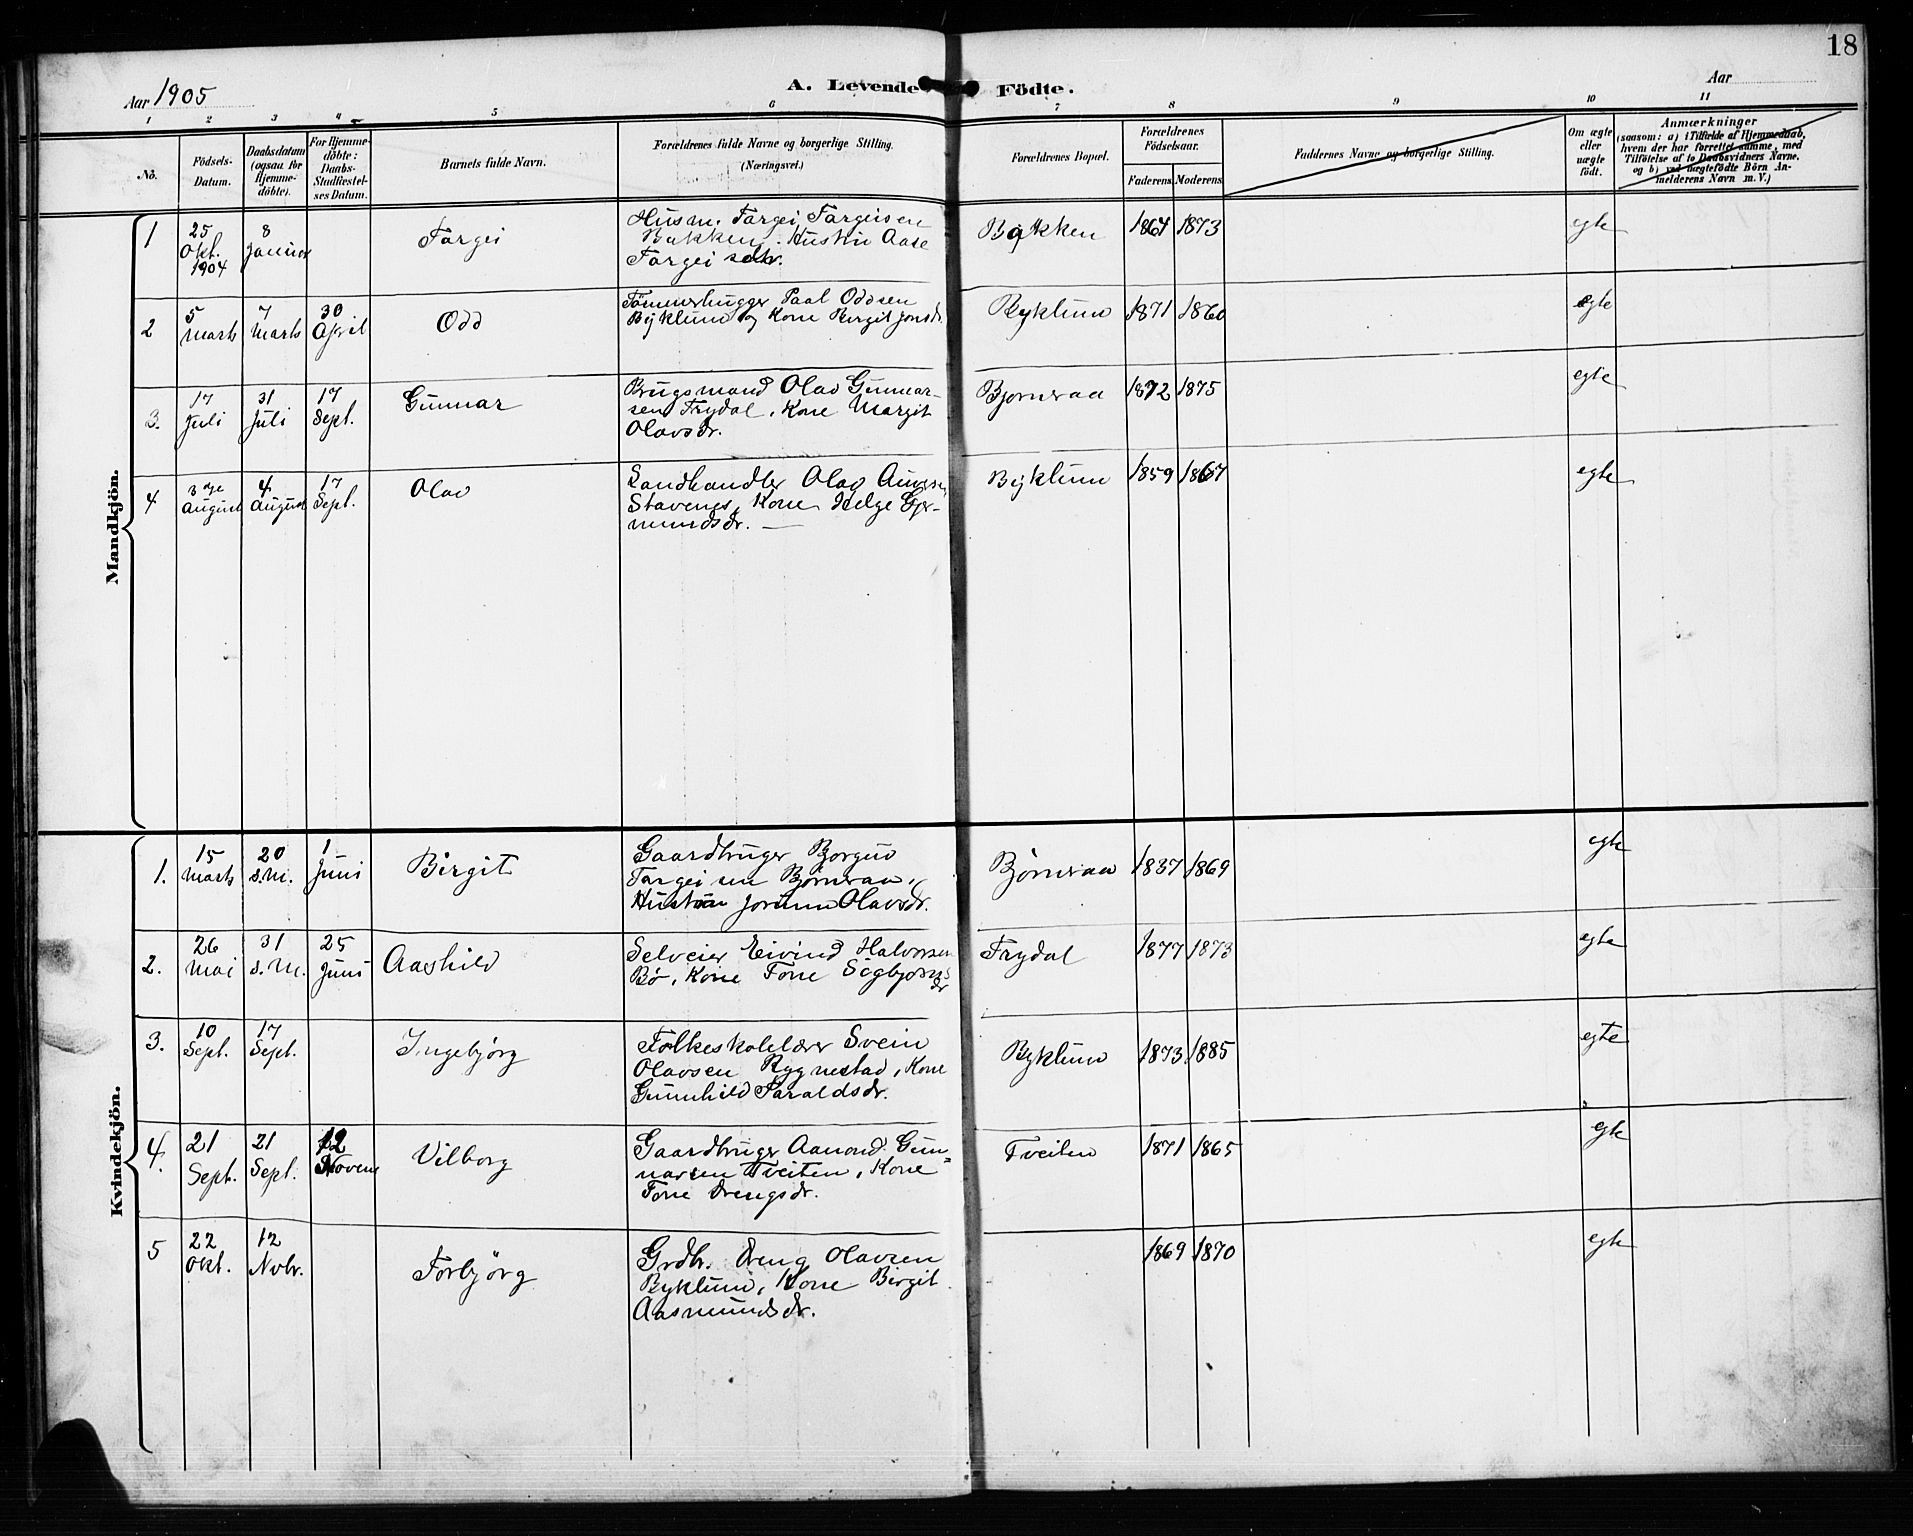 18
Aar 1905
A. Levende Födte.
Aar
1 2 3 4 5 6 7 8 9 10 11
No.
Födsels-Datum.
Daabsdatum (ogsaa for Hjemme-döbte).
For Hjemme-döbte: Daabs-Stadfæstel-ses Datum.
Barnets fulde Navn.
Forældrenes fulde Navne og borgerlige Stilling. (Næringsvei.)
Forældrenes Bopæl.
Forældrenes Födselsaar.
Faderens. Moderens.
Faddernes Navne og borgerlige Stilling.
Om ægte eller uægte födt.
Anmærkninger
(saasom: a) i Tilfælde af Hjemmedaab,
hvem der har forrettet samme, med
Tilföielse af to Daabsvidners Navne,
og b) ved uægtefödte Börn An-
melderens Navn m. V.)
Mandkjön.
1 25 Okt. 1904 8 Januar Targei
Husm. Targei Targeisen
Bakken. Hustru Aase
Targei sdtr.
Bakken 1864 1873 egte
2 5 Marts 7 Marts 30 April Odd
Tømmerhugger Paal Oddsen
Byklum og Kone Bergit Jonsd.
Byklum 1871 1860 egte
3. 17 Juli 31 Juli 17 Sept. Gunnar
Brugsmand Olav Gunnar-
sen Trydal, Kone Margit
Olavsdr.
Bjornraa 1872 1875 egte
4 3 die August 4 August 17 Sept. Olav
Landhandler Olav
Stavenes, Kone Helge Gjer-
mundsdr.
Byklum 1859 1867 egte
Kvindekjön.
1. 15 Marts 20 s.M. 1 Juni Birgit
Gaardbruger Bjorgud
Targeisen Bjørnraa,
Hustru Jorunn Olavsdr.
Bjørnraa 1837 1869 egte
2. 26 Mai 31 s.M. 25 Juni Aashild
Selveier Eivind Halvorsen
Bø, Kone Tone Sigbjorns
dr
Trydal 1877 1873 egte
3. 10 Sept. 17 Sept. Ingebjørg
Folkeskolelærer Svein
Olavsen Rygnestad, Kone
Gunnhild Taraldsdr.
Byklum 1873 1885 egte
4. 21 Sept. 21 Sept. 12 Novem Vilborg
Gaardbruger Aanond Gun-
narsen Tveiten, Kone
Tone Drengsdr.
Tveiten 1871 1865 egte
5 22 Okt. 12 Nvbr. Torbjørg
Grdbr. Dreng Olavsen
Byklum, Kone Birgit
Aasmundsdr.
1869 1870 egte